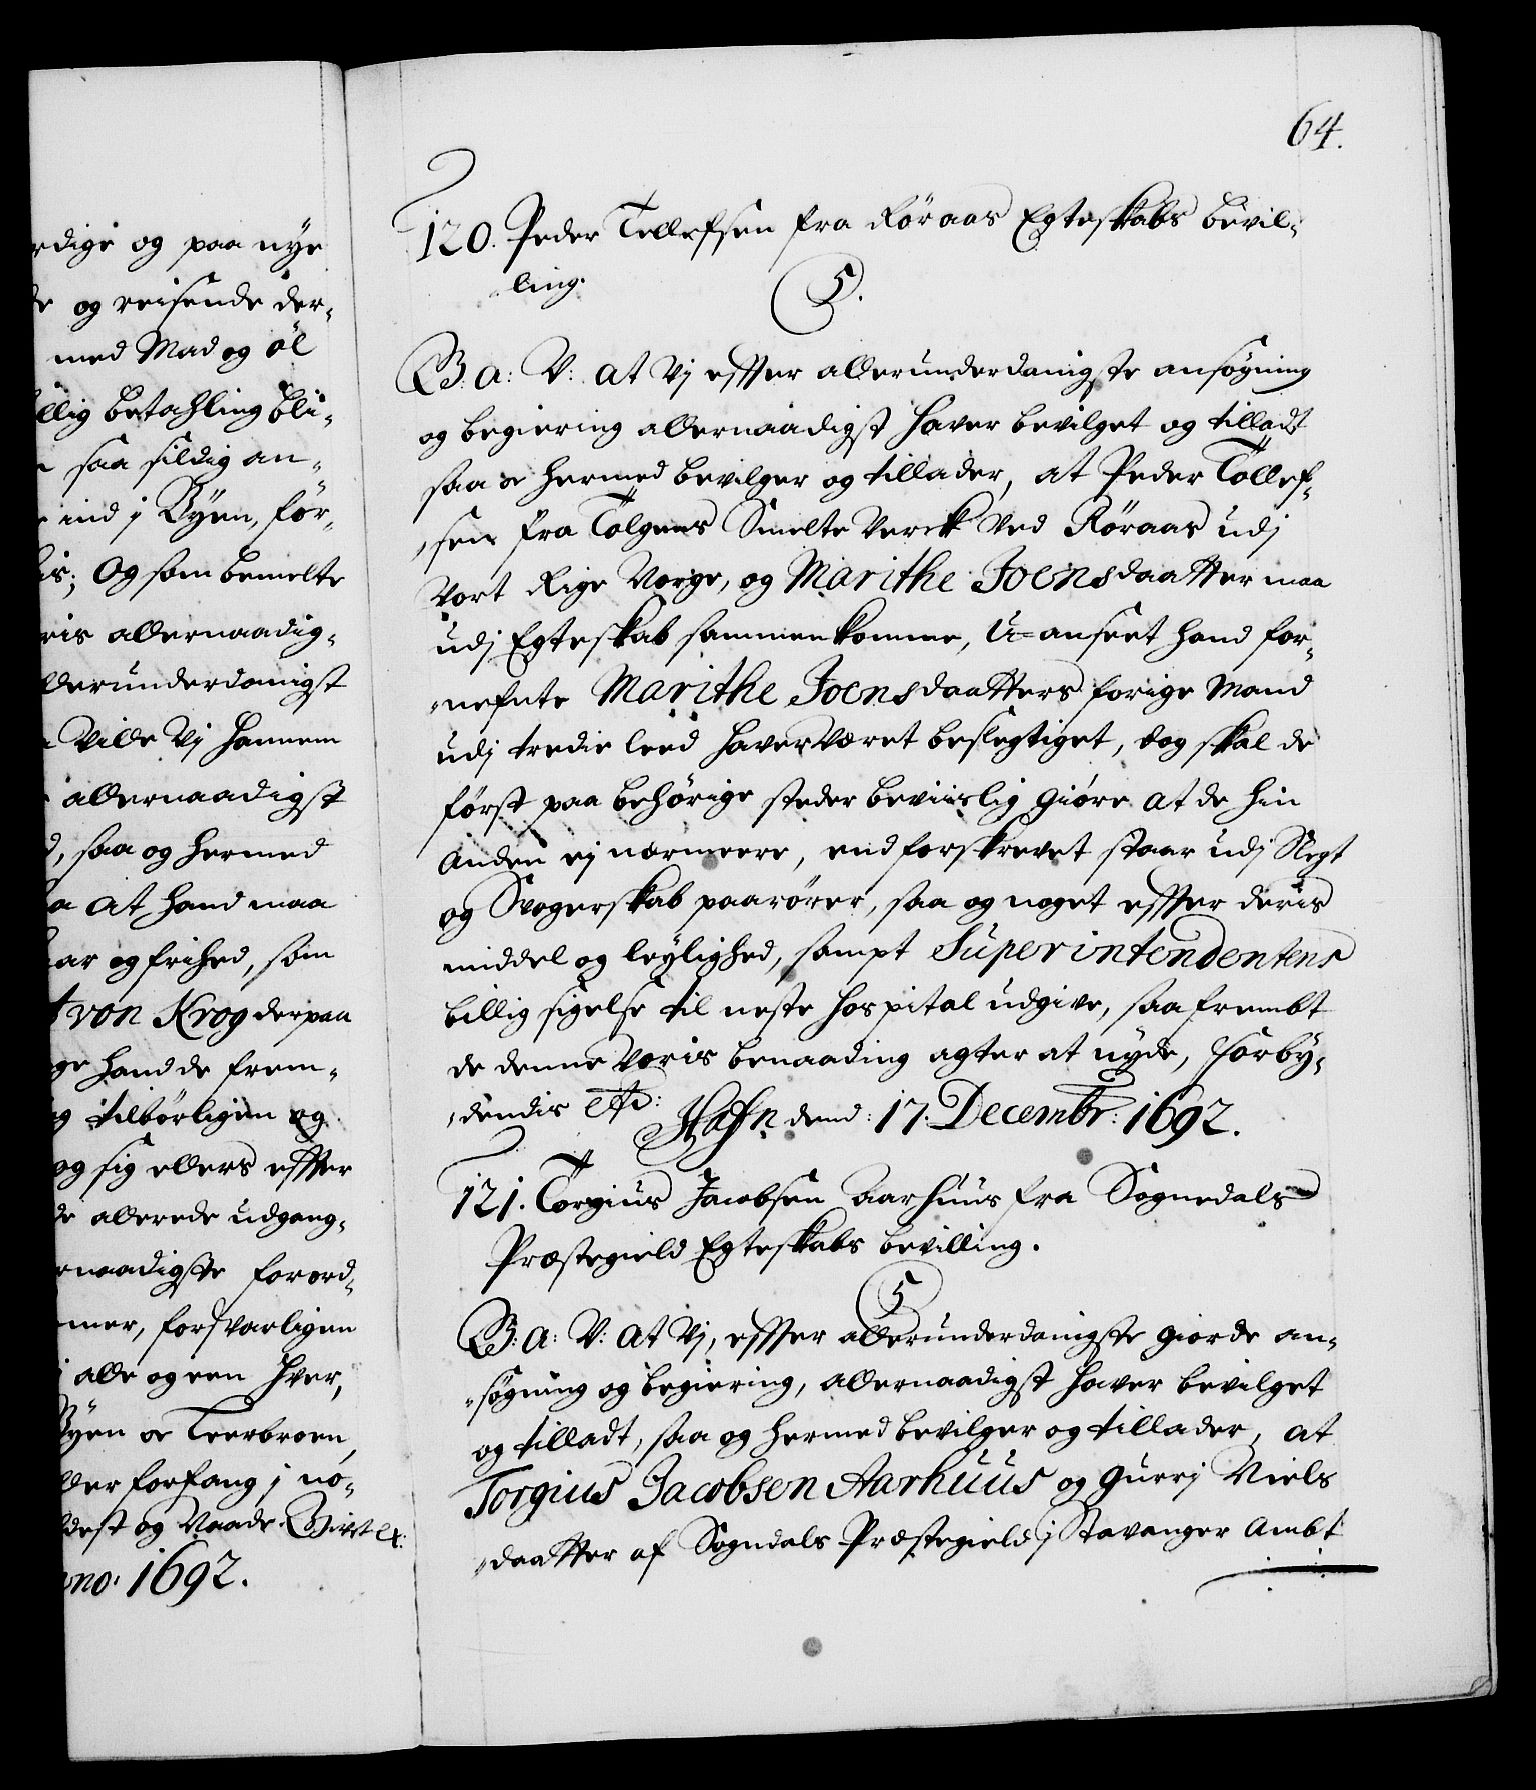 rdige og paa nye
de og reisende der-
med Mad og öl
llig betahling bli-
saa sildig an-
ind j Byen, för-
is; Og som bemelte
ris allernaadig-
llerunderdanigst
Ville Vj hannem
allernaadigst
d, saa og hermed
a at hand maa
ar og frihed, som
t von Krog derpaa
ge hand de frem-
g tilbörligen og
og sig ellers effter
de allerede udgang-
rnaadigste forord-
mer, forsvarligen
j alle og een hver,
Byen oc Leerbroen,
ller forfang j nö-
dest og Vaade. Givet etc:
no: 1692.
64.
120. Peder Tellefsen fra Röraas Egteskabs bevil-
ling.
5.
G: a: V: at Vj effter allerunderdanigste ansögning
og begiering allernaadigst haver bevilget og tilladt
saa oc hermed bevilger og tillader, at Peder Tollef-
sen fra Tolgens Smelte Verck ved Röraas udj
Vort Rige Norge, og Marithe Joensdaatter maa
udj Egteskab sammenkomme, U-anseet hand for-
nefnte Marithe Joensdaatters forige Mand
udj tredie leed haver været beslegtiget, dog skal de
först paa behörige steder beviislig giöre at de hin
anden ej nærmeere, end forskrevet staar udj Slegt
og Svogerskab paarörer, saa og noget effter deris
middel og leylighed, sampt Superintendentens
billig sigelse til neste hospital udgive, saafrembt
de denne Voris benaading agter at nyde, Forby-
dendis etc:
Hafn dend: 17. Decembr: 1692.
121. Torgius Jacobsen Aarhuus fra Sognedals
Præstegield Egteskabs bevilling.
5
G: a: V: at Vj, effter allerunderdanigste giorde an-
sögning og begiering, allernaadigst haver bevilget
og tilladt, saa og hermed bevilger og tillader, at
Torgius Jacobsen Aarhuus og Gurrj Niels
daatter af Sogndals Præstegield j Stavanger Ambt